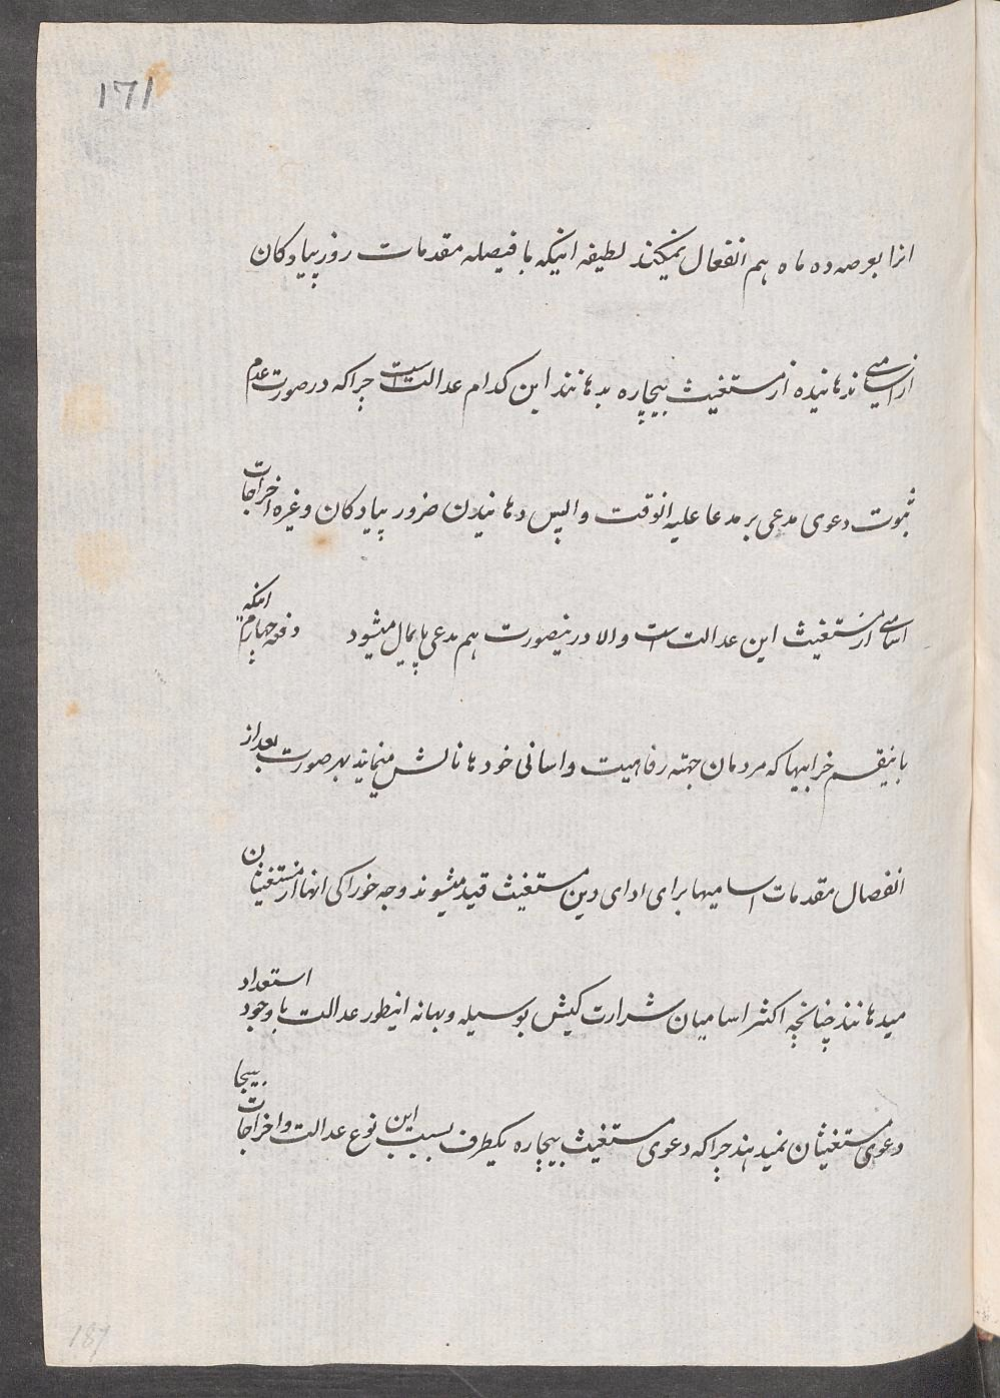 ١٦١
انرا بعرصه ده ماه هم انفعال نمیکنند لطیفه اینکه با فیصله مقدمات روز پیادکان
از اسامی ندهانیده از مستغیث بیچاره بدهانند این کدام عدالت است چراکه در صورت عدم
ثبوت دعوی مدعی بر مدعا علیه انوقت واپس دهانیدن ضرور پیادکان وغیره اخراجات
اسامی از مستغیث این عدالت است والا درینصورت هم مدعی پایمال میشود دفعه چهارم اینکه
باینقسم خرابیها که مردمان جهته رفاهیت واسانی خودها نالش مینمایند بهر صورت بعد از
انفصال مقدمات اسامیها برای ادای دین مستغیث قید میشوند وجه خوراکی انها از مستغیثان
میدهانند چنانچه اکثر اسامیان شرارت کیش بوسیله وبهانه اینطور عدالت باوجود استعداد
دعوی مستغیثان نمیدهند چراکه دعوی مستغیث بیچاره یکطرف بسبب این نوع عدالت واخراجات بیجا
187